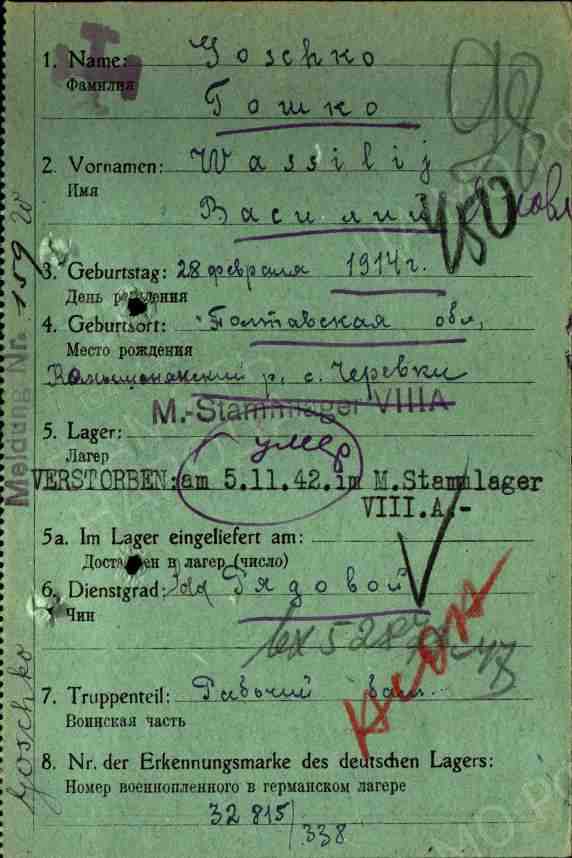 1. Name: Goschko
Фамилия
Гошко
98
2. Vornamen: Wassilij
Имя
Василий
450
3. Geburtstag: 28 февраля 1914 г.
День рождения
4. Geburtsort: Полтавская обл,
Место рождения
р, с. Черевки
M.-Stammlager VIIIA
5. Lager:
Лагер
умер
VERSTORBEN: am 5.11.42. im M.Stammlager
VIII.A.-
5a. Im Lager eingeliefert am:
Доставлен в лагер (число)
6. Dienstgrad: Рядовой
Чин
вх 528
7. Truppenteil: Рабочий бат.
Воинская часть
8. Nr. der Erkennungsmarke des deutschen Lagers:
Номер военнопленного в германском лагере
32 815/
338
Meldung Nr. 159
Goschko